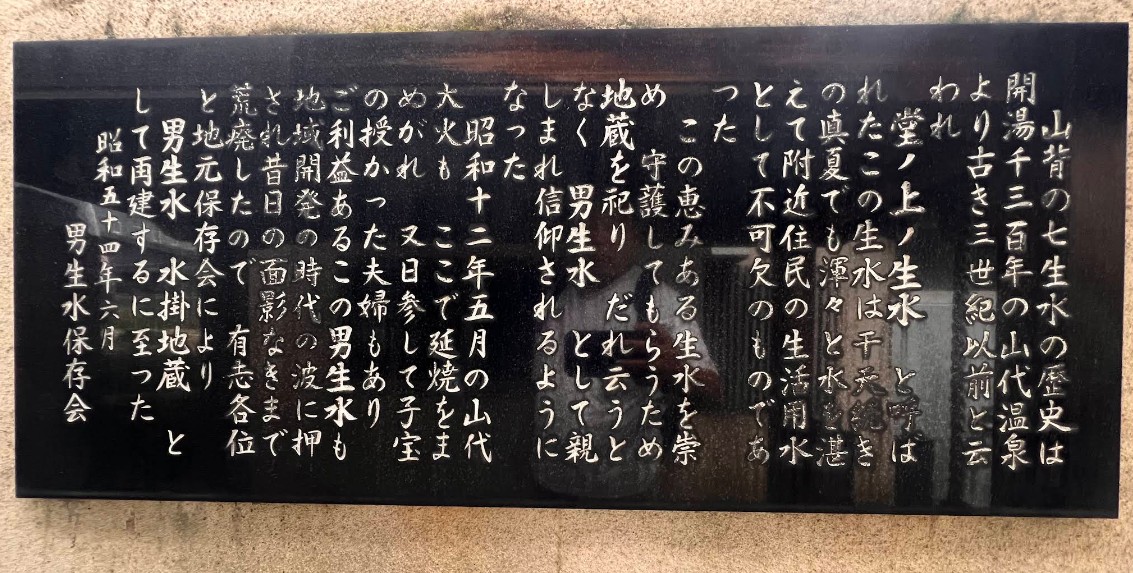 山背の七生水の歴史は
開湯千三百年の山代温泉
より古き三世紀以前と云
われ
堂ノ上ノ生水 と呼ば
れたこの生水は干天続き
の真夏でも渾々と水を湛
えて附近住民の生活用水
として不可欠のものであ
った
この恵みある生水を崇
め 守護してもらうため
地蔵を祀り だれ云うと
なく 男生水 として親
しまれ信仰されるように
なった
昭和十二年五月の山代
大火も ここで延焼をま
めがれ 又日参して子宝
の授かった夫婦もあり
ご利益あるこの男生水も
地域開発の時代の波に押
され昔日の面影なきまで
荒廃したので 有志各位
と地元保存会により
男生水 水掛地蔵 と
して再建するに至った
昭和五十四年六月
男生水保存会